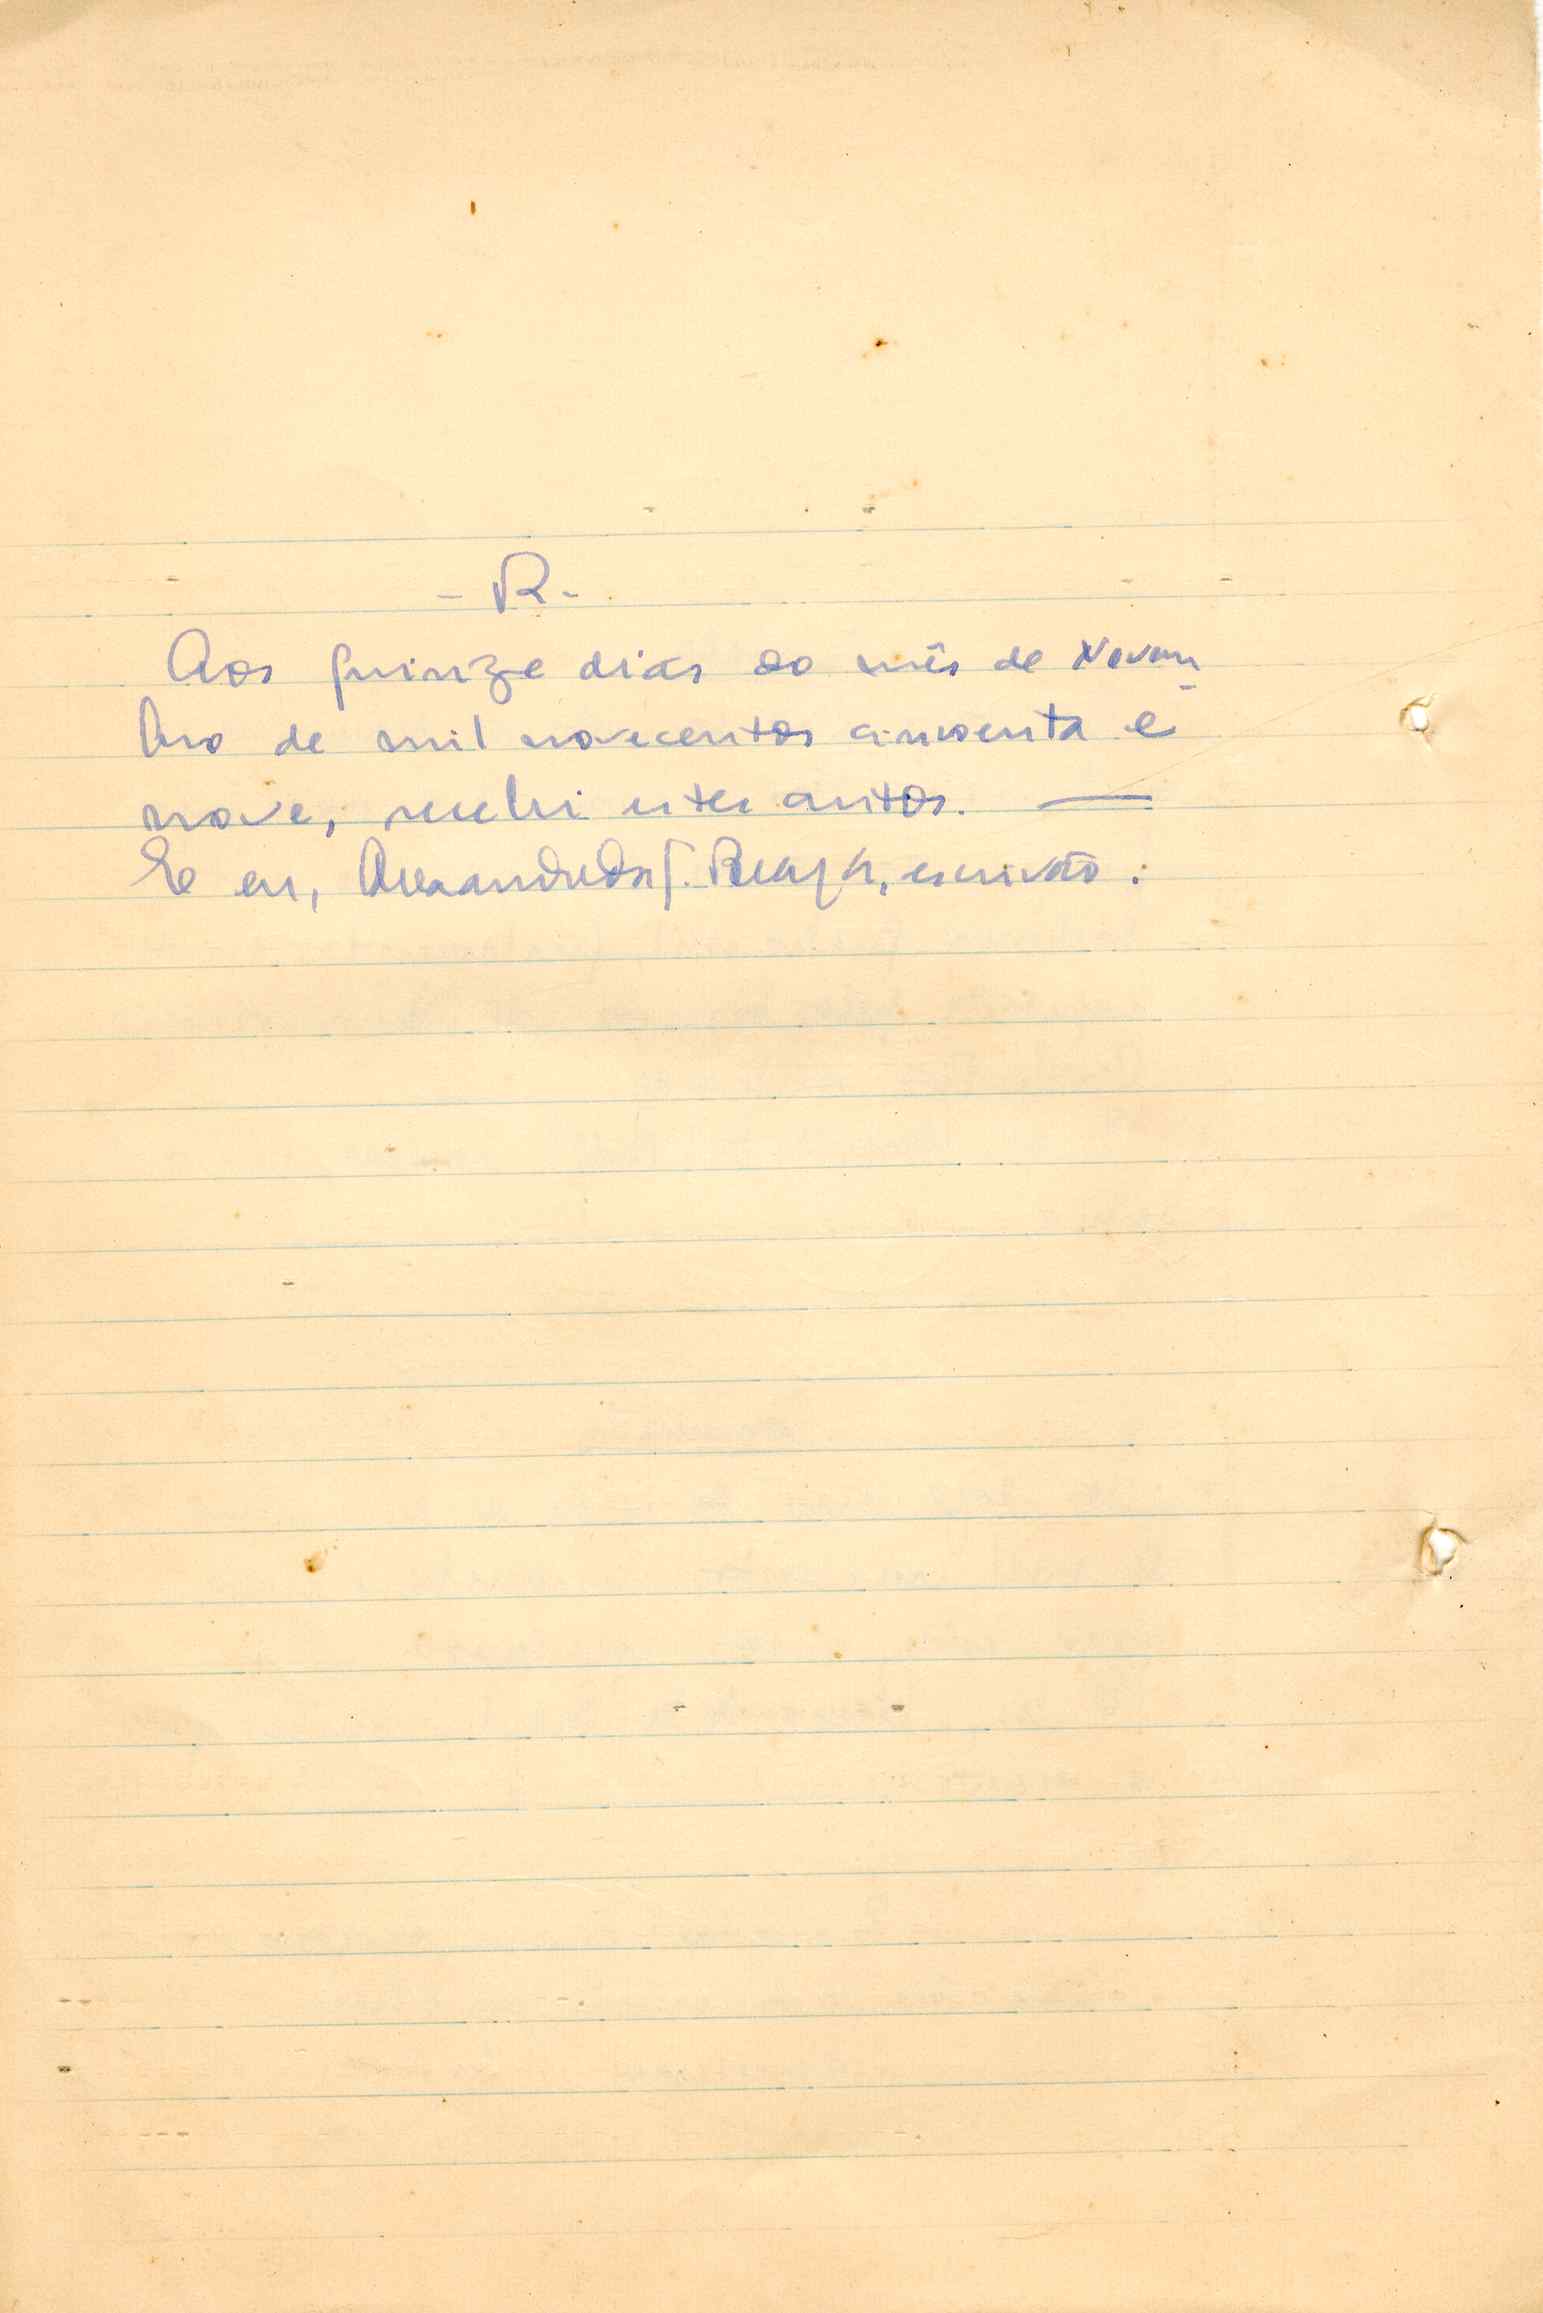 - R -
Aos quinze dias do mês de Novem
bro de mil novecentos cincoenta e
nove, recebi estes autos. —
E eu, escrivão.